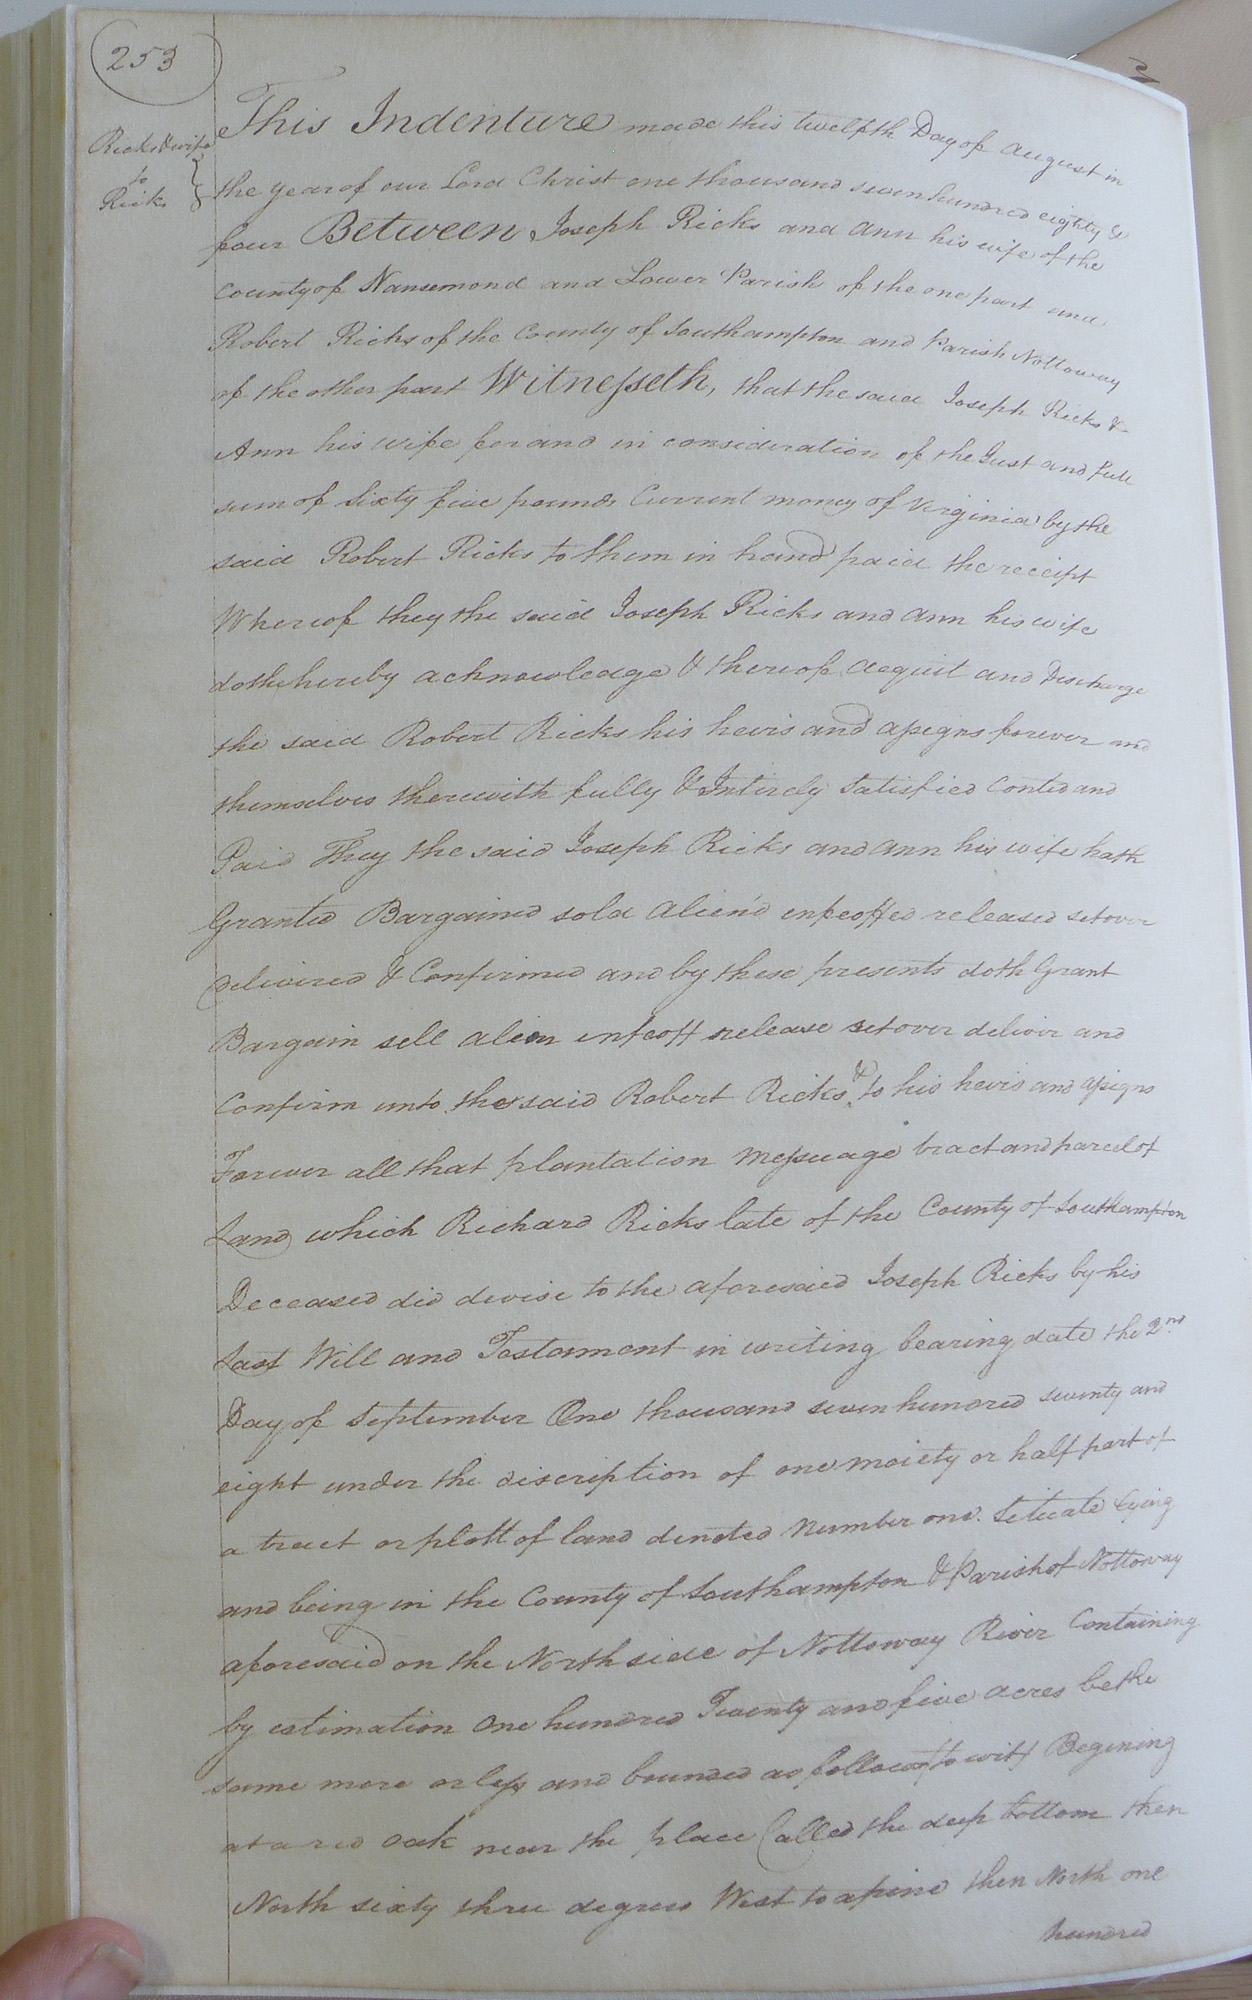 253
Ricks & wife
to
Ricks
This Indenture made this twelfth Day of August in
the year of our Lord Christ one thousand seven hundred eighty &
four Between Joseph Ricks and Ann his wife of the
County of Nansemond and Lower Parish of the one part and
Robert Ricks of the County of Southampton and Parish Nottoway
of the other part Witnesseth, that the said Joseph Ricks &
Ann his wife for and in consideration of the Just and full
sum of Sixty five pounds Current money of Virginia by the
said Robert Ricks to them in hand paid the receipt
Whereof they the said Joseph Ricks and Ann his wife
doth hereby acknowledge & thereof acquit and Discharge
the said Robert Ricks his heirs and assigns forever and
themselves therewith fully & Intirely Satisfied Conted and
Paid They the said Joseph Ricks and Ann his wife hath
Granted Bargained sold Alien'd enfeoffed released setover
delivered & Confirmed and by these presents doth Grant
Bargain sell alien enfeoff release setover deliver and
Confirm unto the said Robert Ricks & to his heirs and assigns
Forever all that plantation Messuage tract and parcel of
Land which Richard Ricks late of the County of Southampton
Deceased did devise to the aforesaied Joseph Ricks by his
Last Will and Testament in writing bearing date the 2nd
Day of September One thousand seven hundred seventy and
eight under the discription of one moiety or half part of
a tract or plott of land denoted Number one. Situate lying
and being in the County of Southampton & Parish of Nottoway
aforesaid on the North side of Nottoway River Containing
by estimation One hundred Twenty and five acres be the
same more or less and bounded as followeth to wit Begining
at a red oak near the place Called the deep bottom then
North sixty three degrees West to a pine then North one
hundred